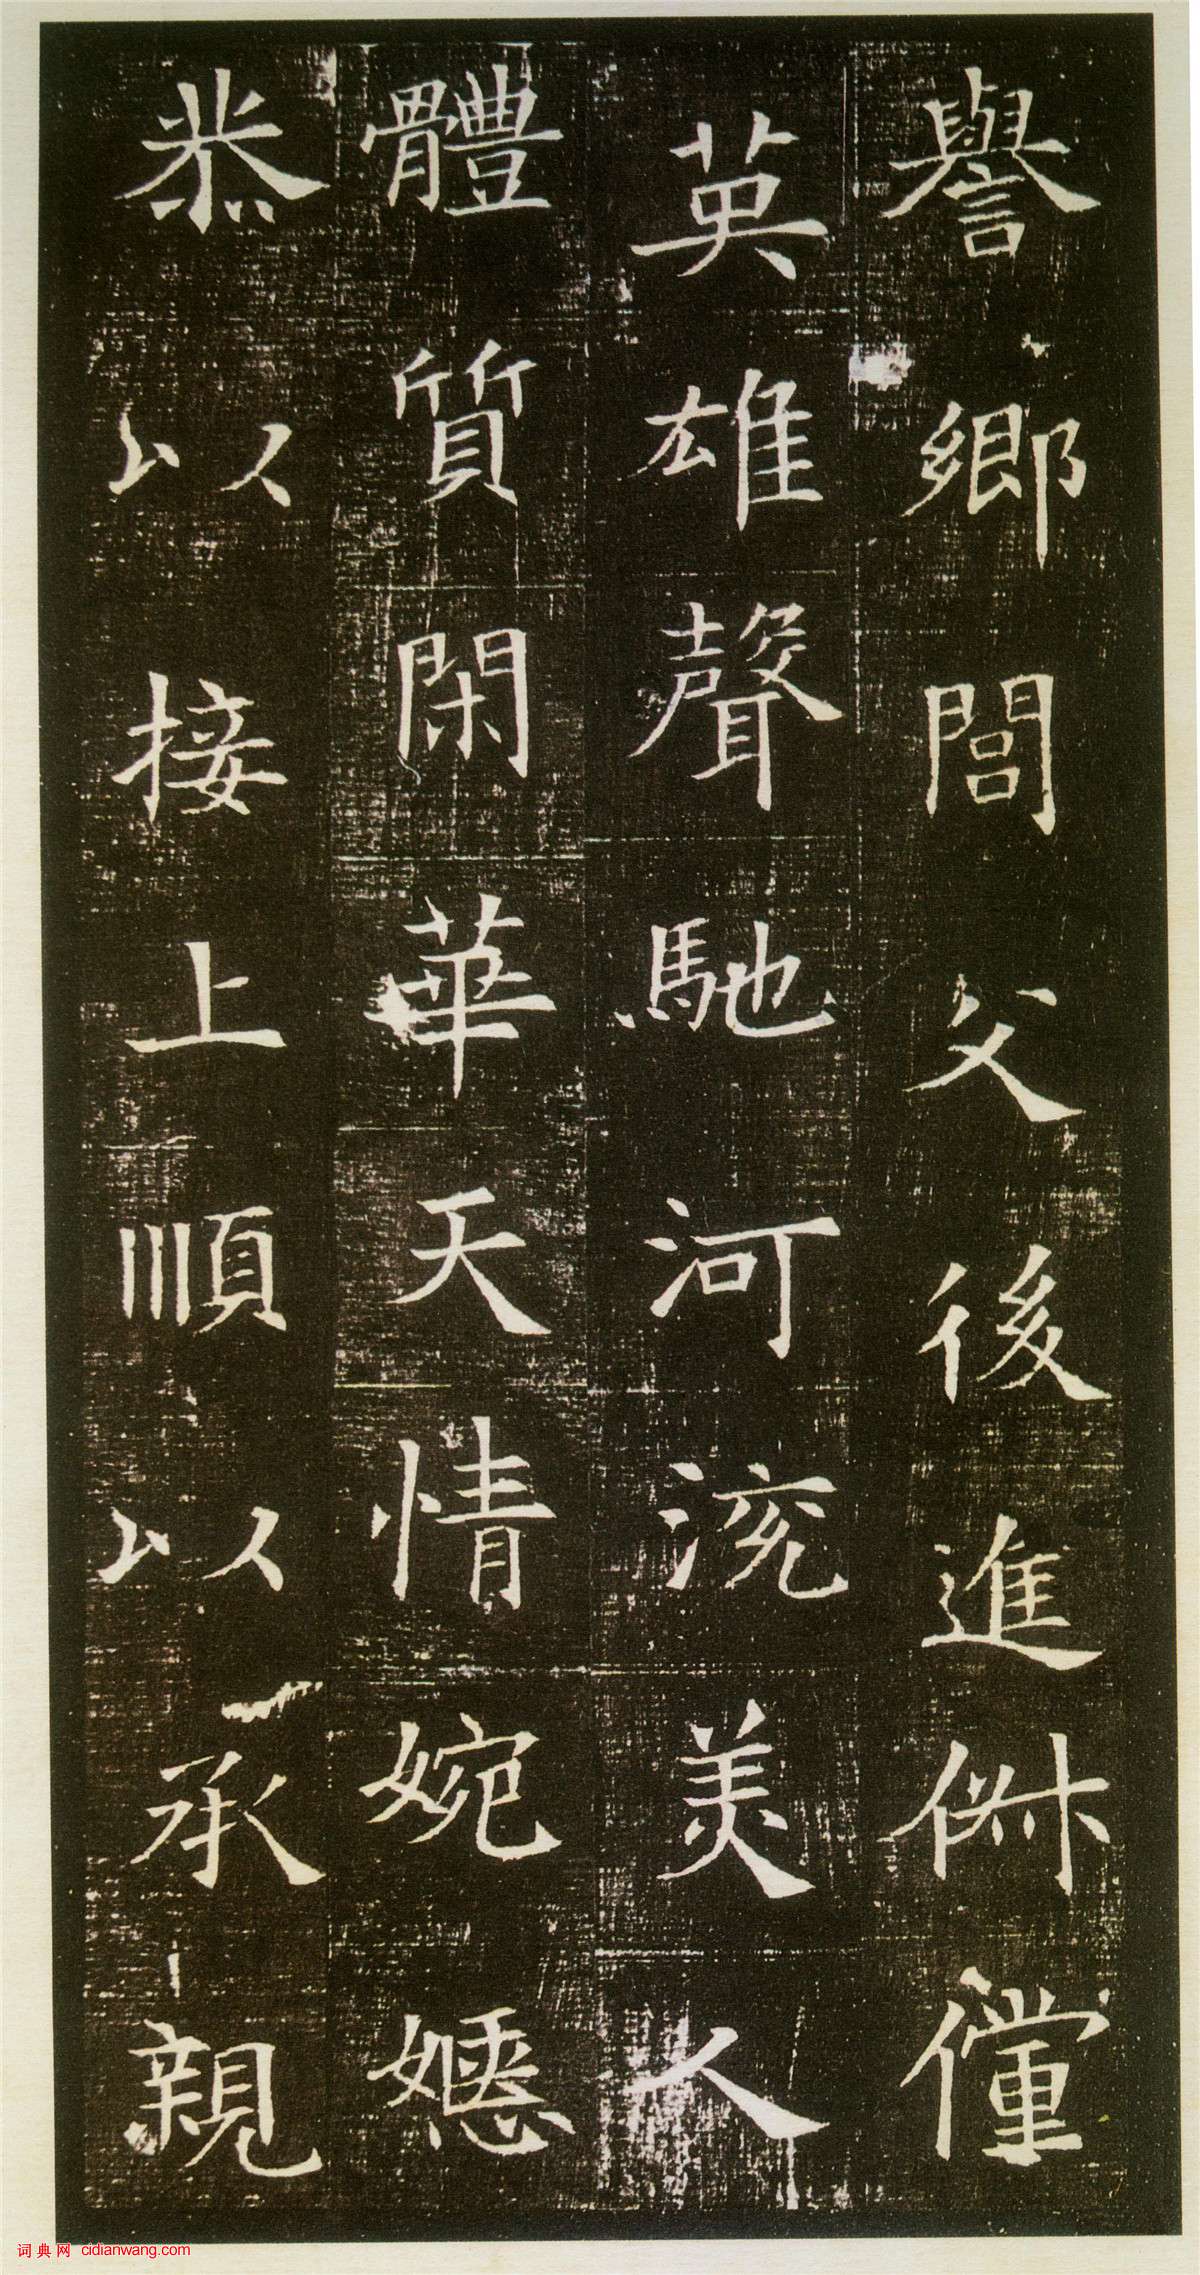 譽鄉閭父後進俶儻
英雄聲馳河渷美人
體質閑華天情婉嫕
恭以接上順以承親
词典网 cidianwang.com